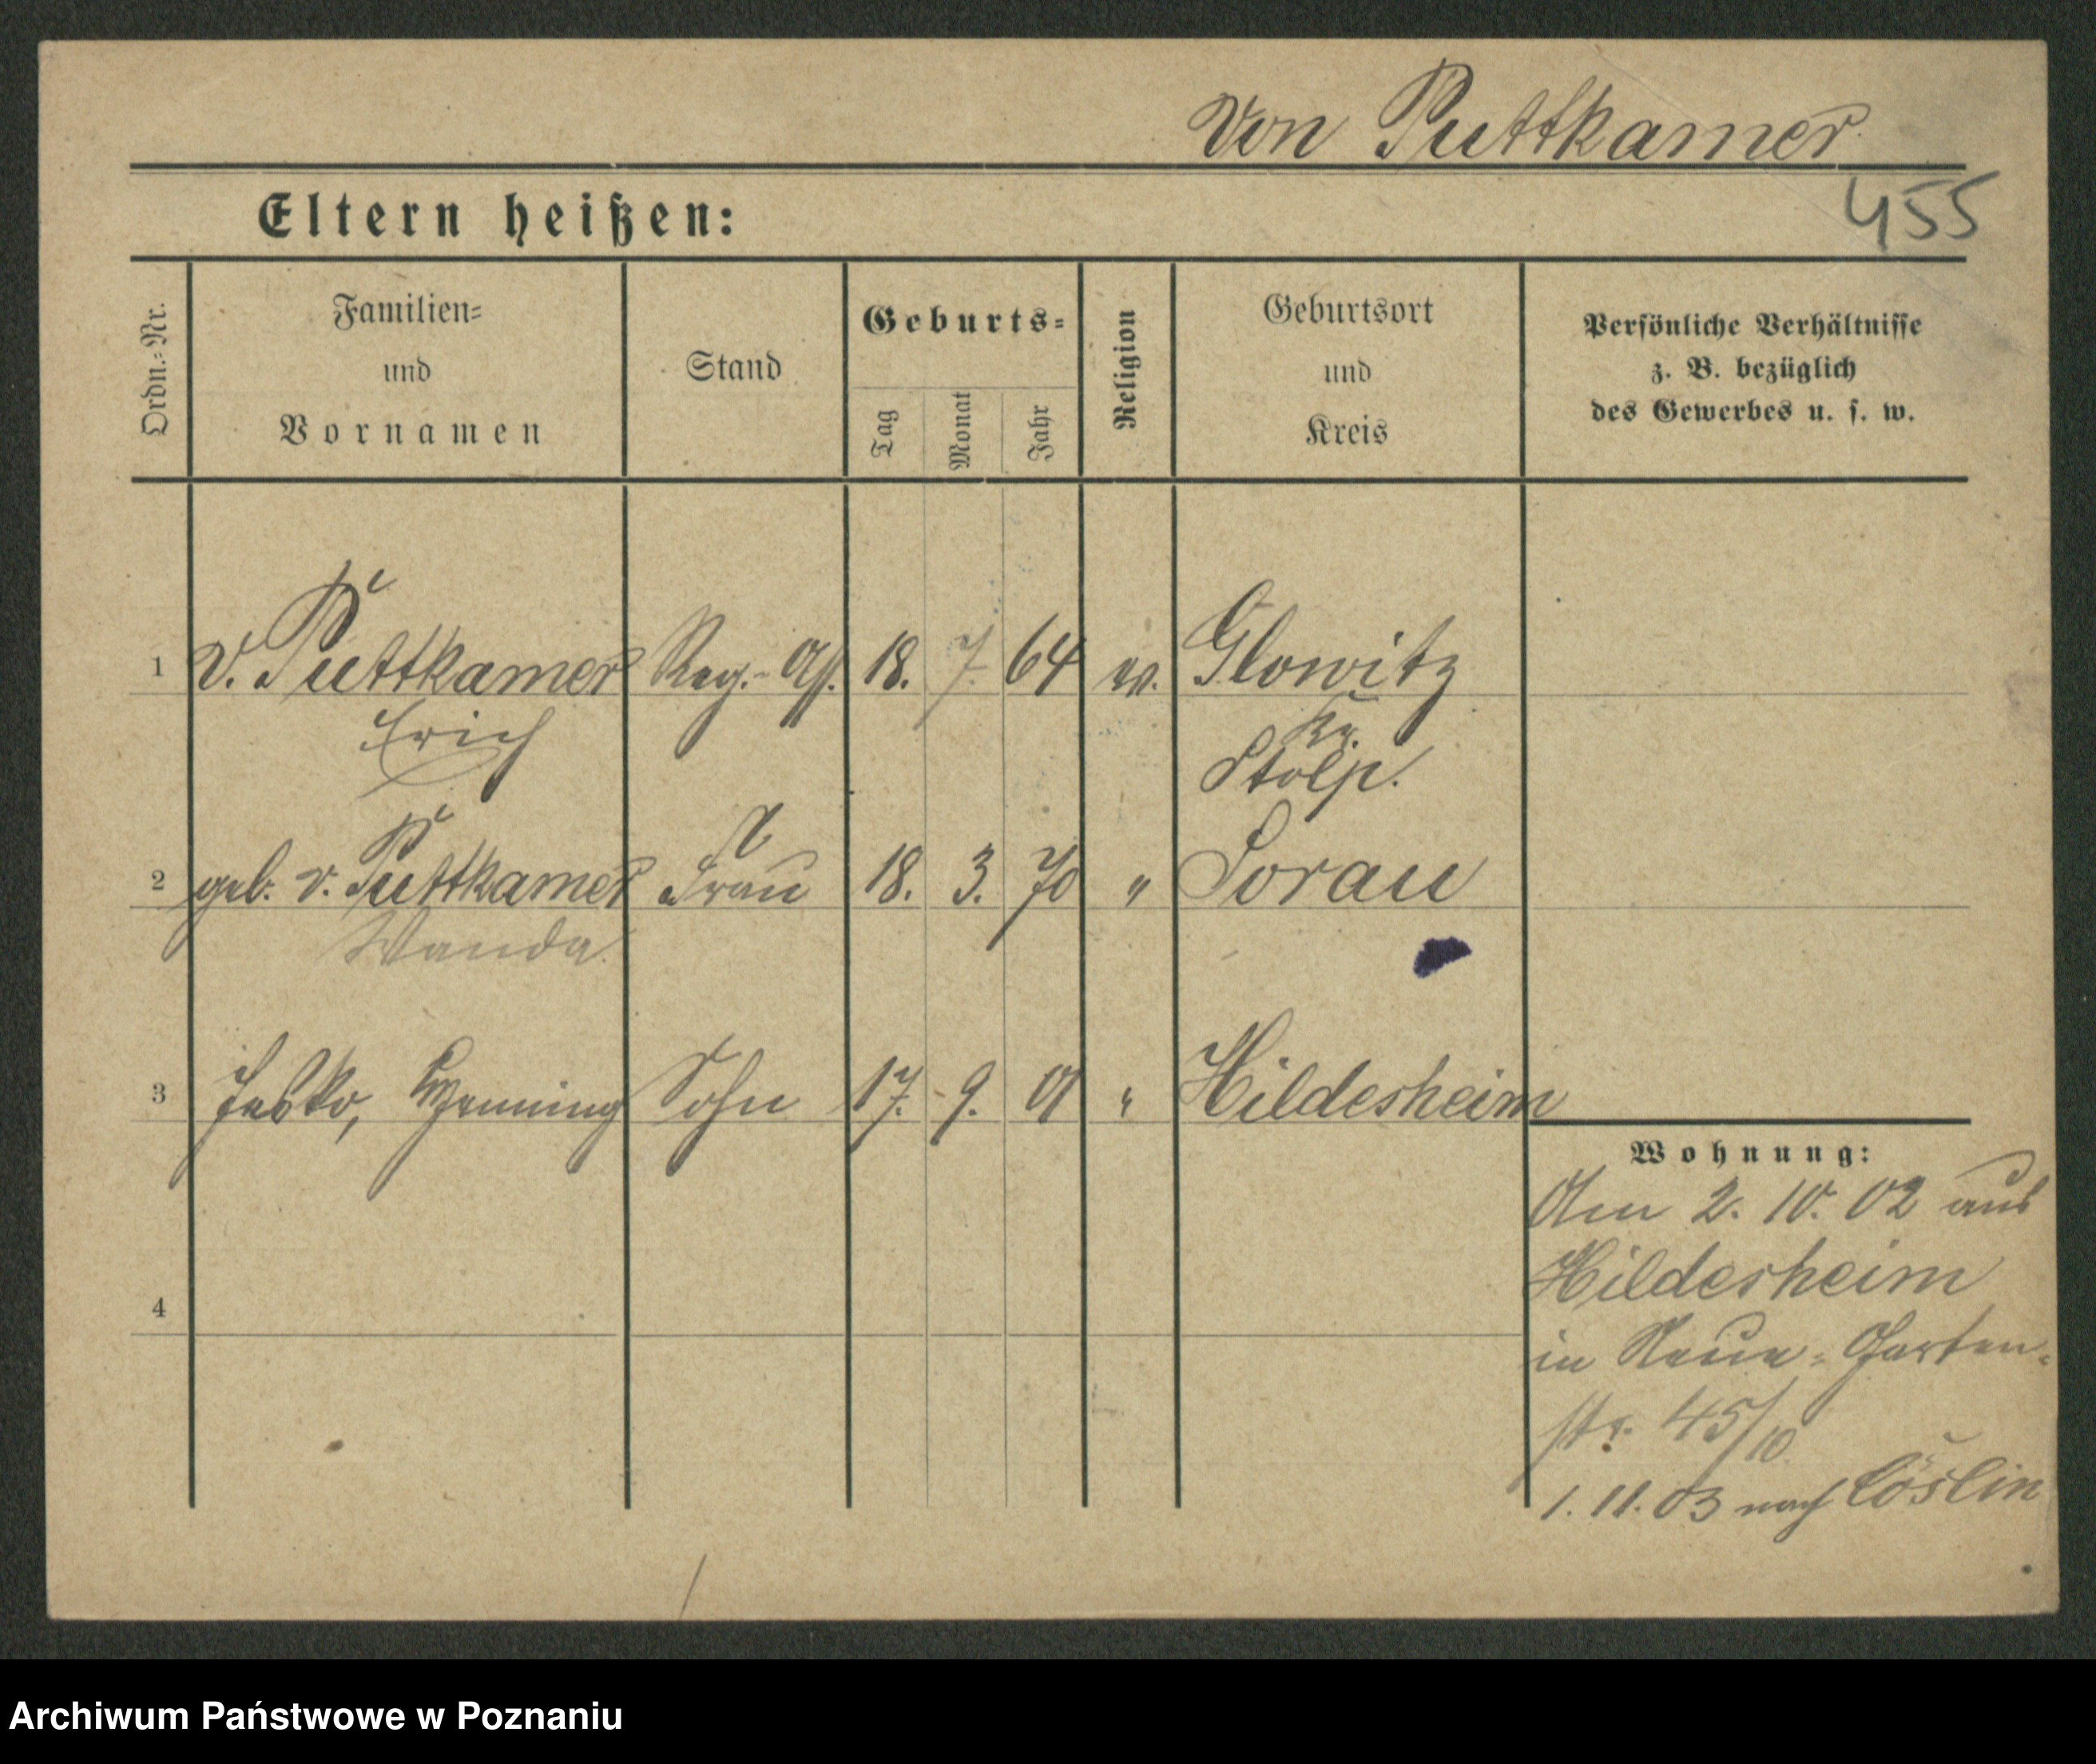 Von Puttkamer
455
Eltern heißen:
Ordn.-Nr.
Familien-
und
Vornamen
Stand
Geburts-
Tag
Monat
Jahr
Religion
Geburtsort
und
Kreis
Persönliche Verhältnisse
z. B. bezüglich
des Gewerbes u. s. w.
1 v. Puttkamer Reg.- Ass. 18. 7. 64 ev. Glowitz
Erich Kr.
Stolp.
2 geb. v. Puttkamer Frau 18. 3. 70 " Sorau
Wanda.
3 Jesko, Henning Sohn 17. 9. 01 " Hildesheim
Wohnung:
Am 2. 10. 02 aus
Hildesheim
4
in Neue-Garten-
str. 45/10
1. 11. 03 nach Cöslin
Archiwum Państwowe w Poznaniu